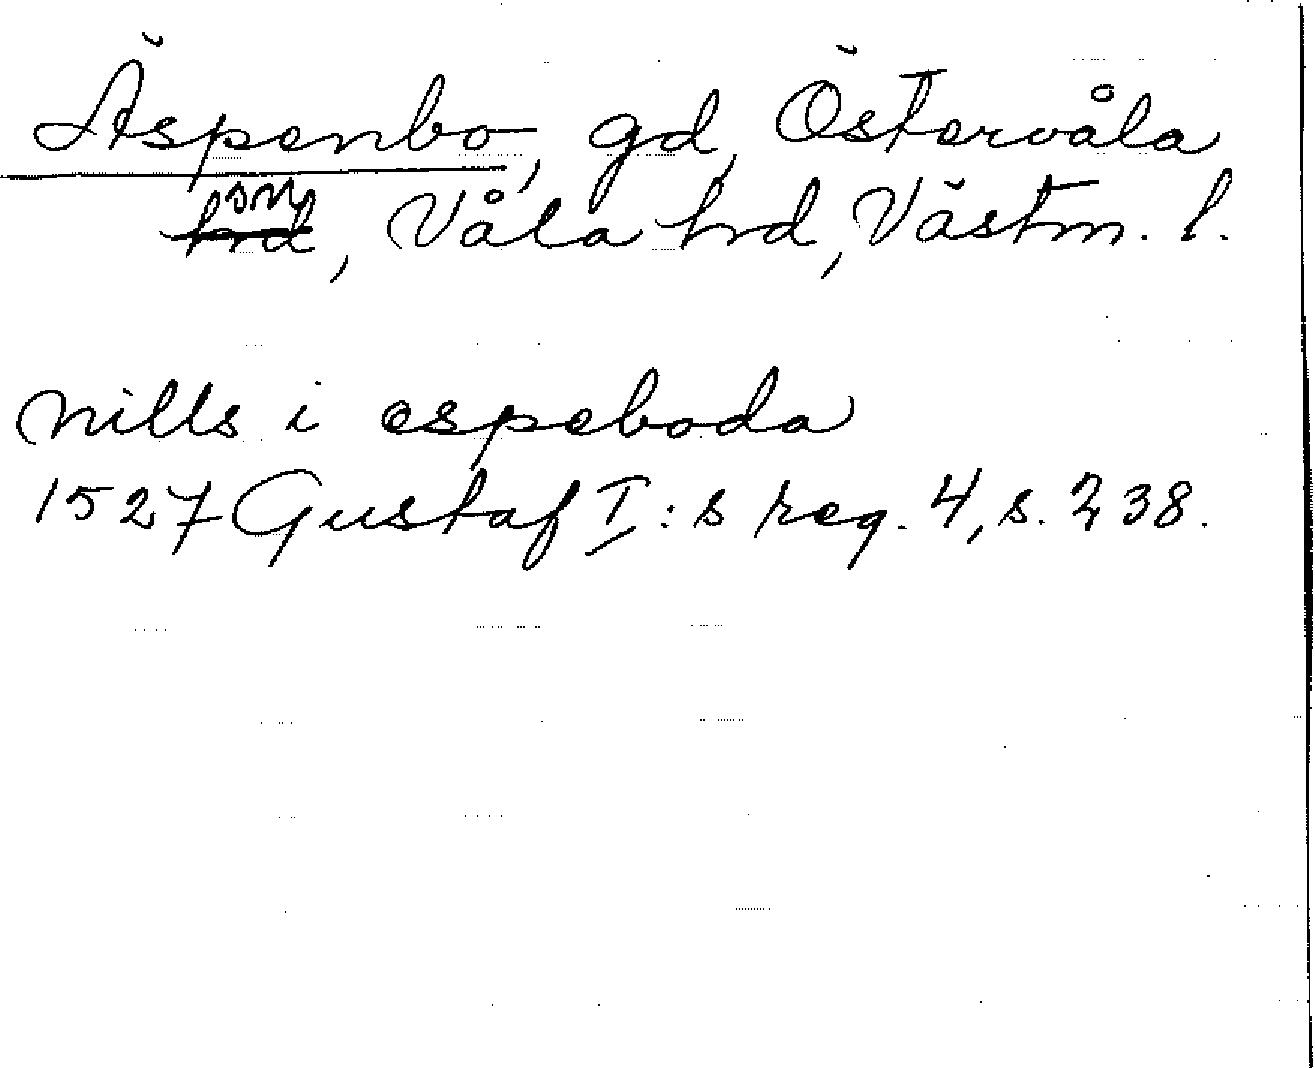 Äspenbo, gd, Östervåla
sn, Våla hrd, Västm. l.
nills i espeboda
1527 Gustaf I:s reg. 4, s. 238.